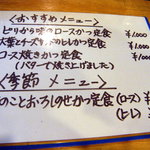 <おすすめ メニュー>
ピリから味のロースかつ定食 ¥1,000
大葉とチーズ のひれかつ定食 ¥1,000
ロース焼きかつ定食 ¥1,000
(バターで焼き上げました)
<季節 メニュー>
のことおろしのせかつ定食 (ロース)
(ヒレ)